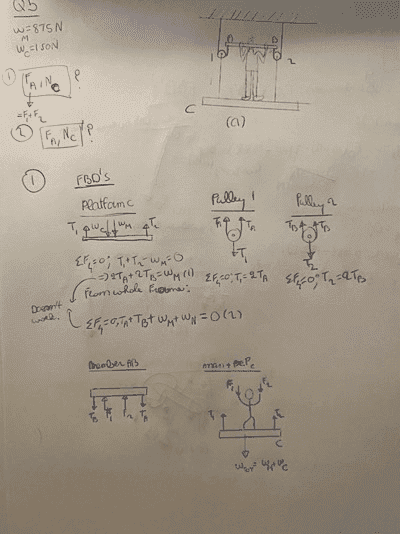 Q5
W_M = 875N
W_C = 150N
① F_A, N_C ?
= F_1 + F_2
② F_A, N_C ?
1
2
C
(a)
① FBD's
Platform C
Pulley 1
Pulley 2
T_1 W_C W_M T_2
T_A T_A
T_1
T_B T_B
T_2
ΣF_y = 0; T_1 + T_2 - W_M = 0
=> 2T_A + 2T_B = W_M (1)
ΣF_y = 0; T_1 = 2T_A
ΣF_y = 0; T_2 = 2T_B
From whole Frame:
Doesn't work.
ΣF_y = 0; T_A + T_B + W_M + W_N = 0 (2)
Member AB
man + P_C
T_B F_1 F_2 T_A
F_1 F_2
T_1 T_2
C
= W_M + W_C